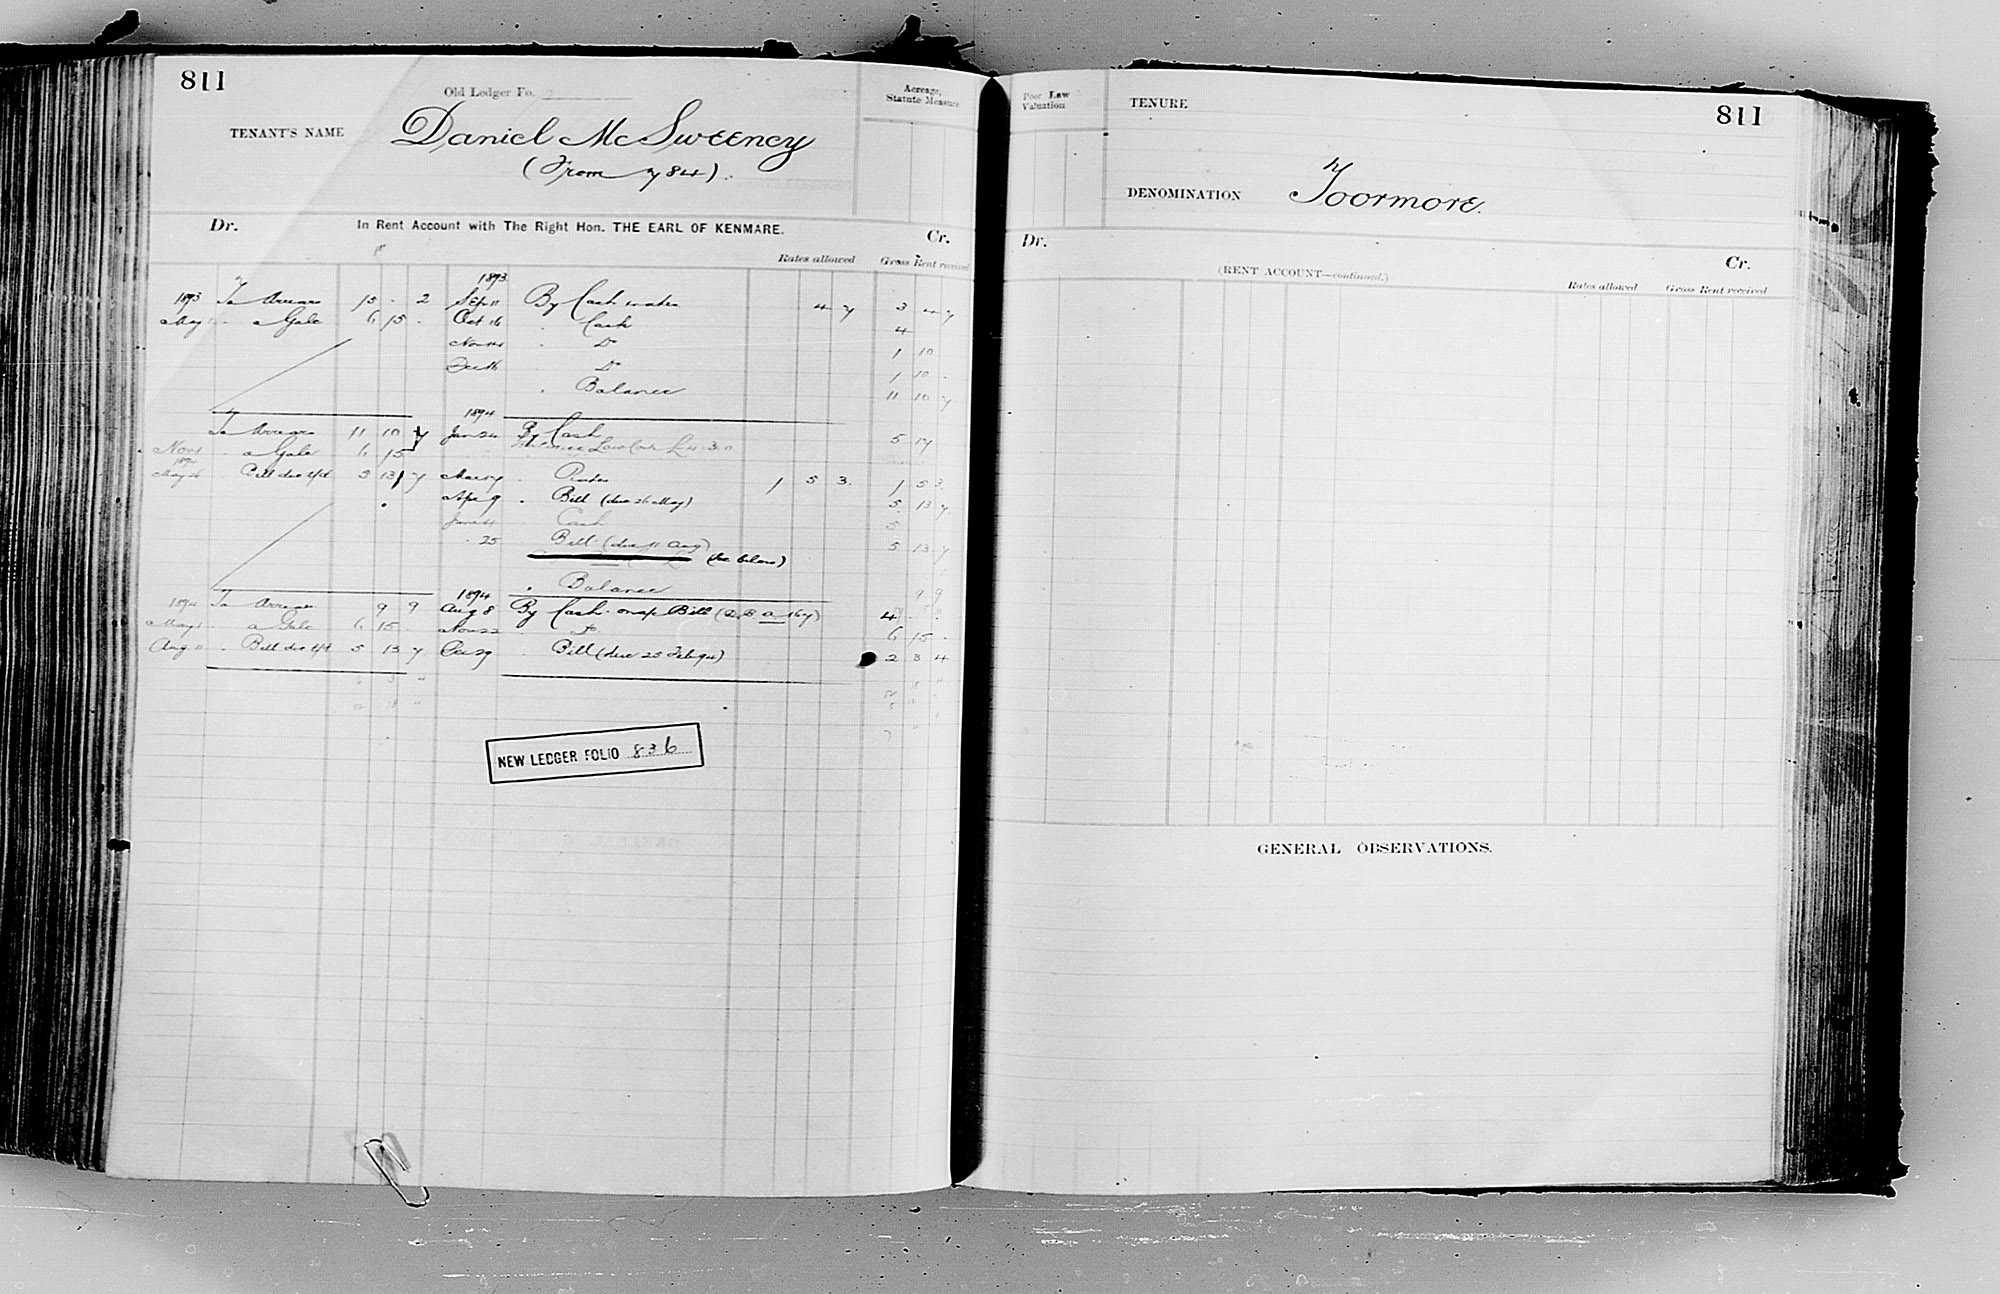 811
Old Ledger Fo.
Acreage, Statute Measure
TENANT'S NAME Daniel McSweeney
(From 784).
Dr. In Rent Account with The Right Hon. THE EARL OF KENMARE. Cr.
Rates allowed Gross Rent received
1893
1893 To Arrears 15 - 2 Sep 11 By Cash 4 7 3 4 7
May 1 " a Gale 6 15 - Oct 16 " Cash 4
Nov Do 1 10
Dec 16 Do 1 10 -
" Balance 11 10 7
1894
To Arrears 11 10 7 Jan 24 By Cash 5 17
Nov 1 " a Gale 6 15
May 26 Bill due 5 13 7 Mar 27 " Rates 1 5 3 1 5 3
Apr 9 " Bill (due 26 May) 5 13 7
June 11 Cash 5
" 25 Bill (due 11 Aug) 5 13 7
(see below)
" Balance 9 9
1894
1894 To Arrears 9 9 Aug 8 By Cash on a/c Bill 4
May 1 " a Gale 6 15 - Nov 22 " Do 6 15 -
Aug 11 " Bill due 5 13 7 Dec 29 Bill (due 25 Feb 94) 2 3 4
NEW LEDGER FOLIO 836
Poor Law Valuation
TENURE
811
DENOMINATION Toormore.
Dr.
Cr.
(RENT ACCOUNT—continued.)
Rates allowed Gross Rent received
GENERAL OBSERVATIONS.